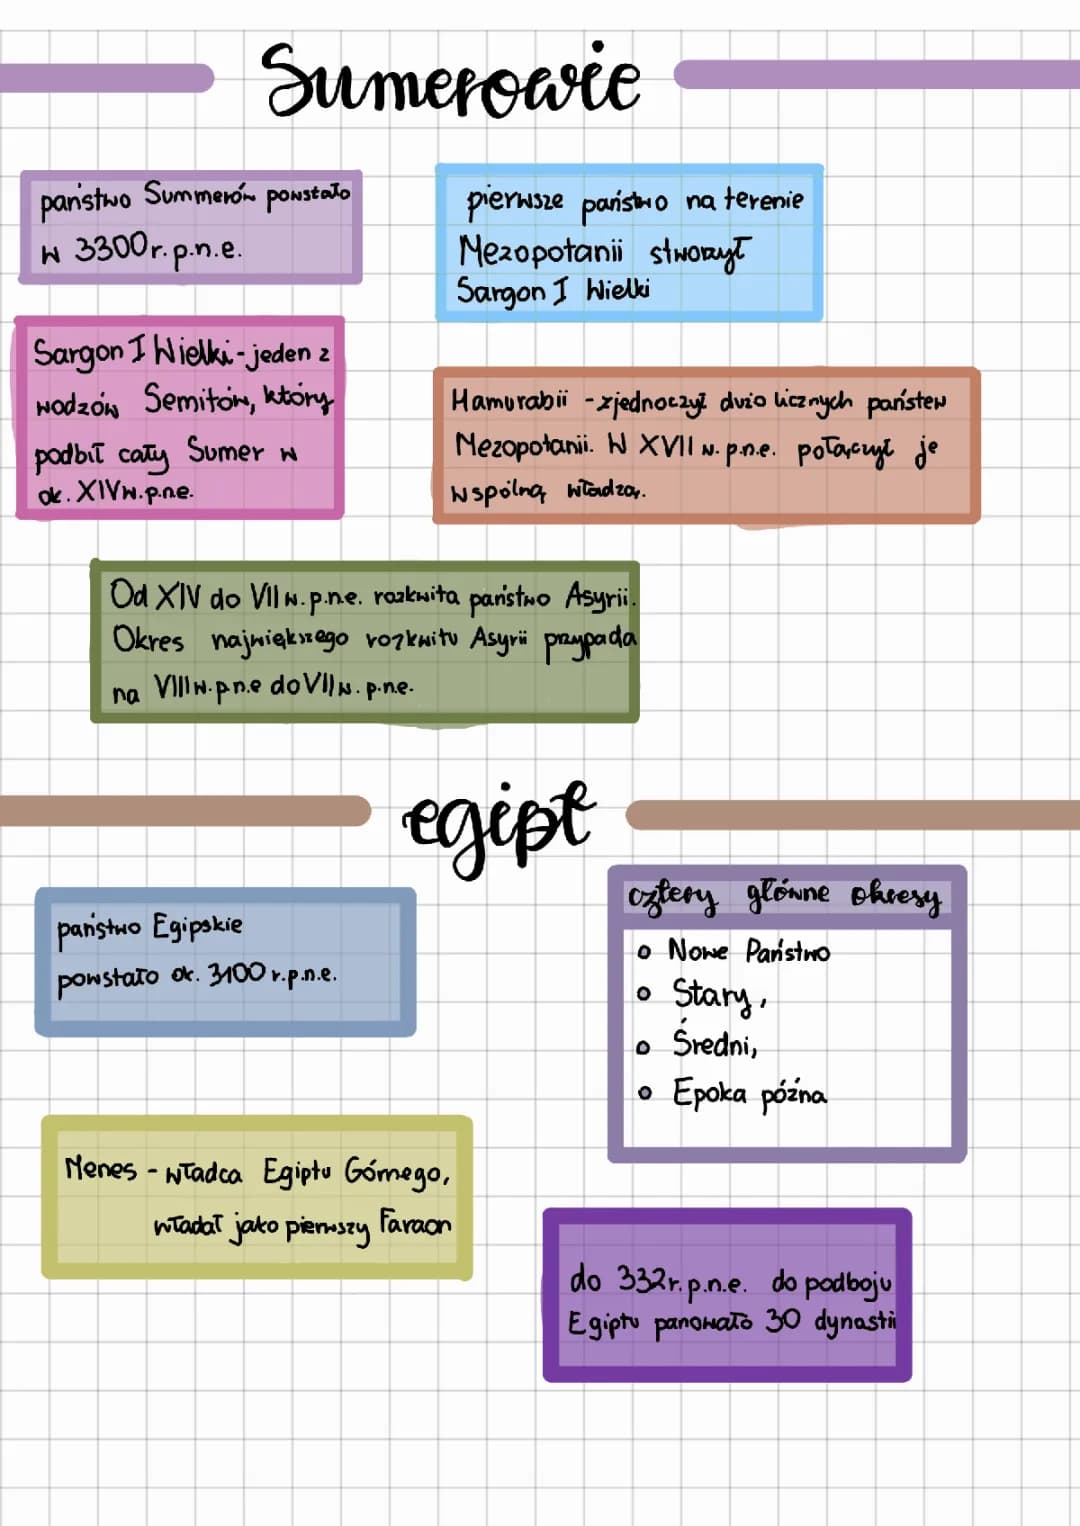 Sumerowie
państwo Summerów powstało
w 3300r.p.n.e.
pierwsze państwo na terenie
Mezopotanii stworzył
Sargon I Wielki
Sargon I Wielki - jeden z
wodzów Semitów, który
podbił cały Sumer w
ok. XIVw.p.ne.
Hamurabii - zjednoczył dużo licznych państew
Mezopotanii. W XVII w. p.n.e. połączył je
wspólną władzą.
Od XIV do VII w. p.n.e. rozkwita państwo Asyrii.
Okres największego rozkwitu Asyrii przypada
na VIII w. p n.e do VII w. p.n.e.
egipt
państwo Egipskie
powstało ok. 3100 r.p.n.e.
cztery główne okresy
Nowe Państwo
Stary,
Średni,
Epoka późna
Menes - władca Egiptu Górnego,
władał jako pierwszy Faraon
do 332r. p.n.e. do podboju
Egiptu panowało 30 dynastii